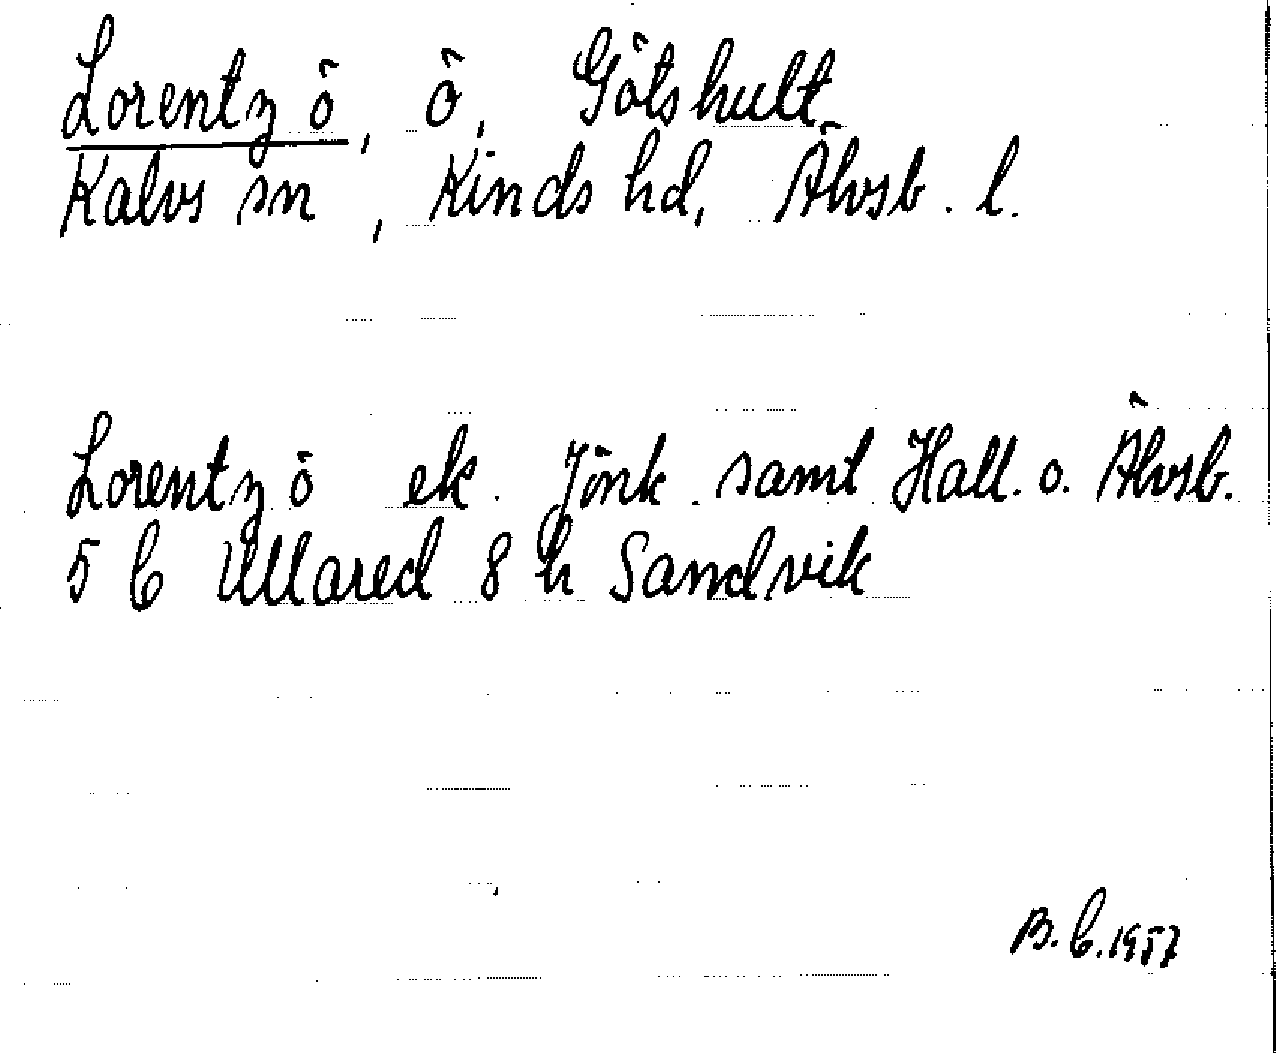 Lorentz ö, ö, Götshult
Kalvs sn, Kinds hd, Älvsb. l.
Lorentz ö ek. Jönk. samt Hall. o. Älvsb.
5 C Ullared 8 h Sandvik
B. C. 1957